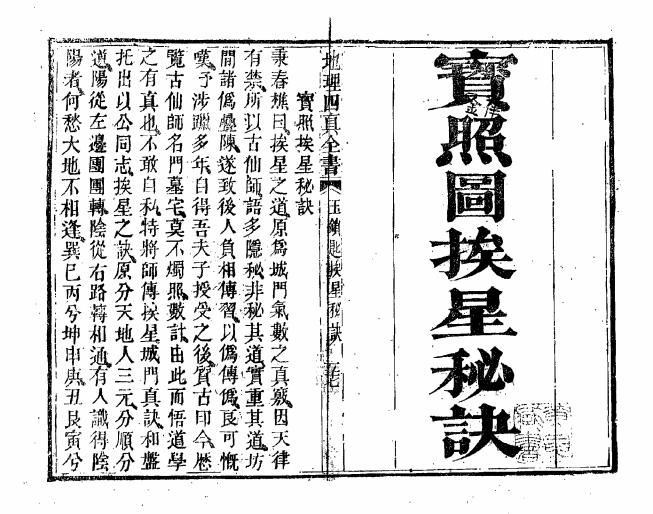 寶照圖挨星秘訣
地理四真全書 玉鎖匙挨星秘訣
寶照挨星秘訣
秉春樵曰挨星之道原爲城門氣數之真竅因天律
有禁所以古仙師語多隱秘非秘其道實重其道坊
間諸僞疊陳遂致後人負相傳習以僞傳僞良可慨
嘆予涉躐多年自得吾夫子授受之後質古印今歷
覽古仙師名門墓宅莫不燭照數計由此而悟道學
之有真也不敢自私特將師傳挨星城門真訣和盤
托出以公同志挨星之訣原分天地人三元分順分
逆陽從左邊團團轉陰從右路轉相通有人識得陰
陽者何愁大地不相逢巽巳丙兮坤申庚丑艮寅兮